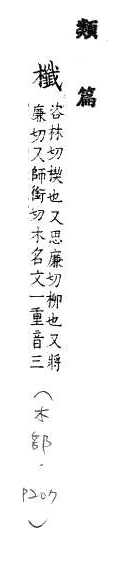 類篇
櫼 咨林切楔也又思廉切柳也又將
廉切又師銜切木名文一重音三
（木部．P207）